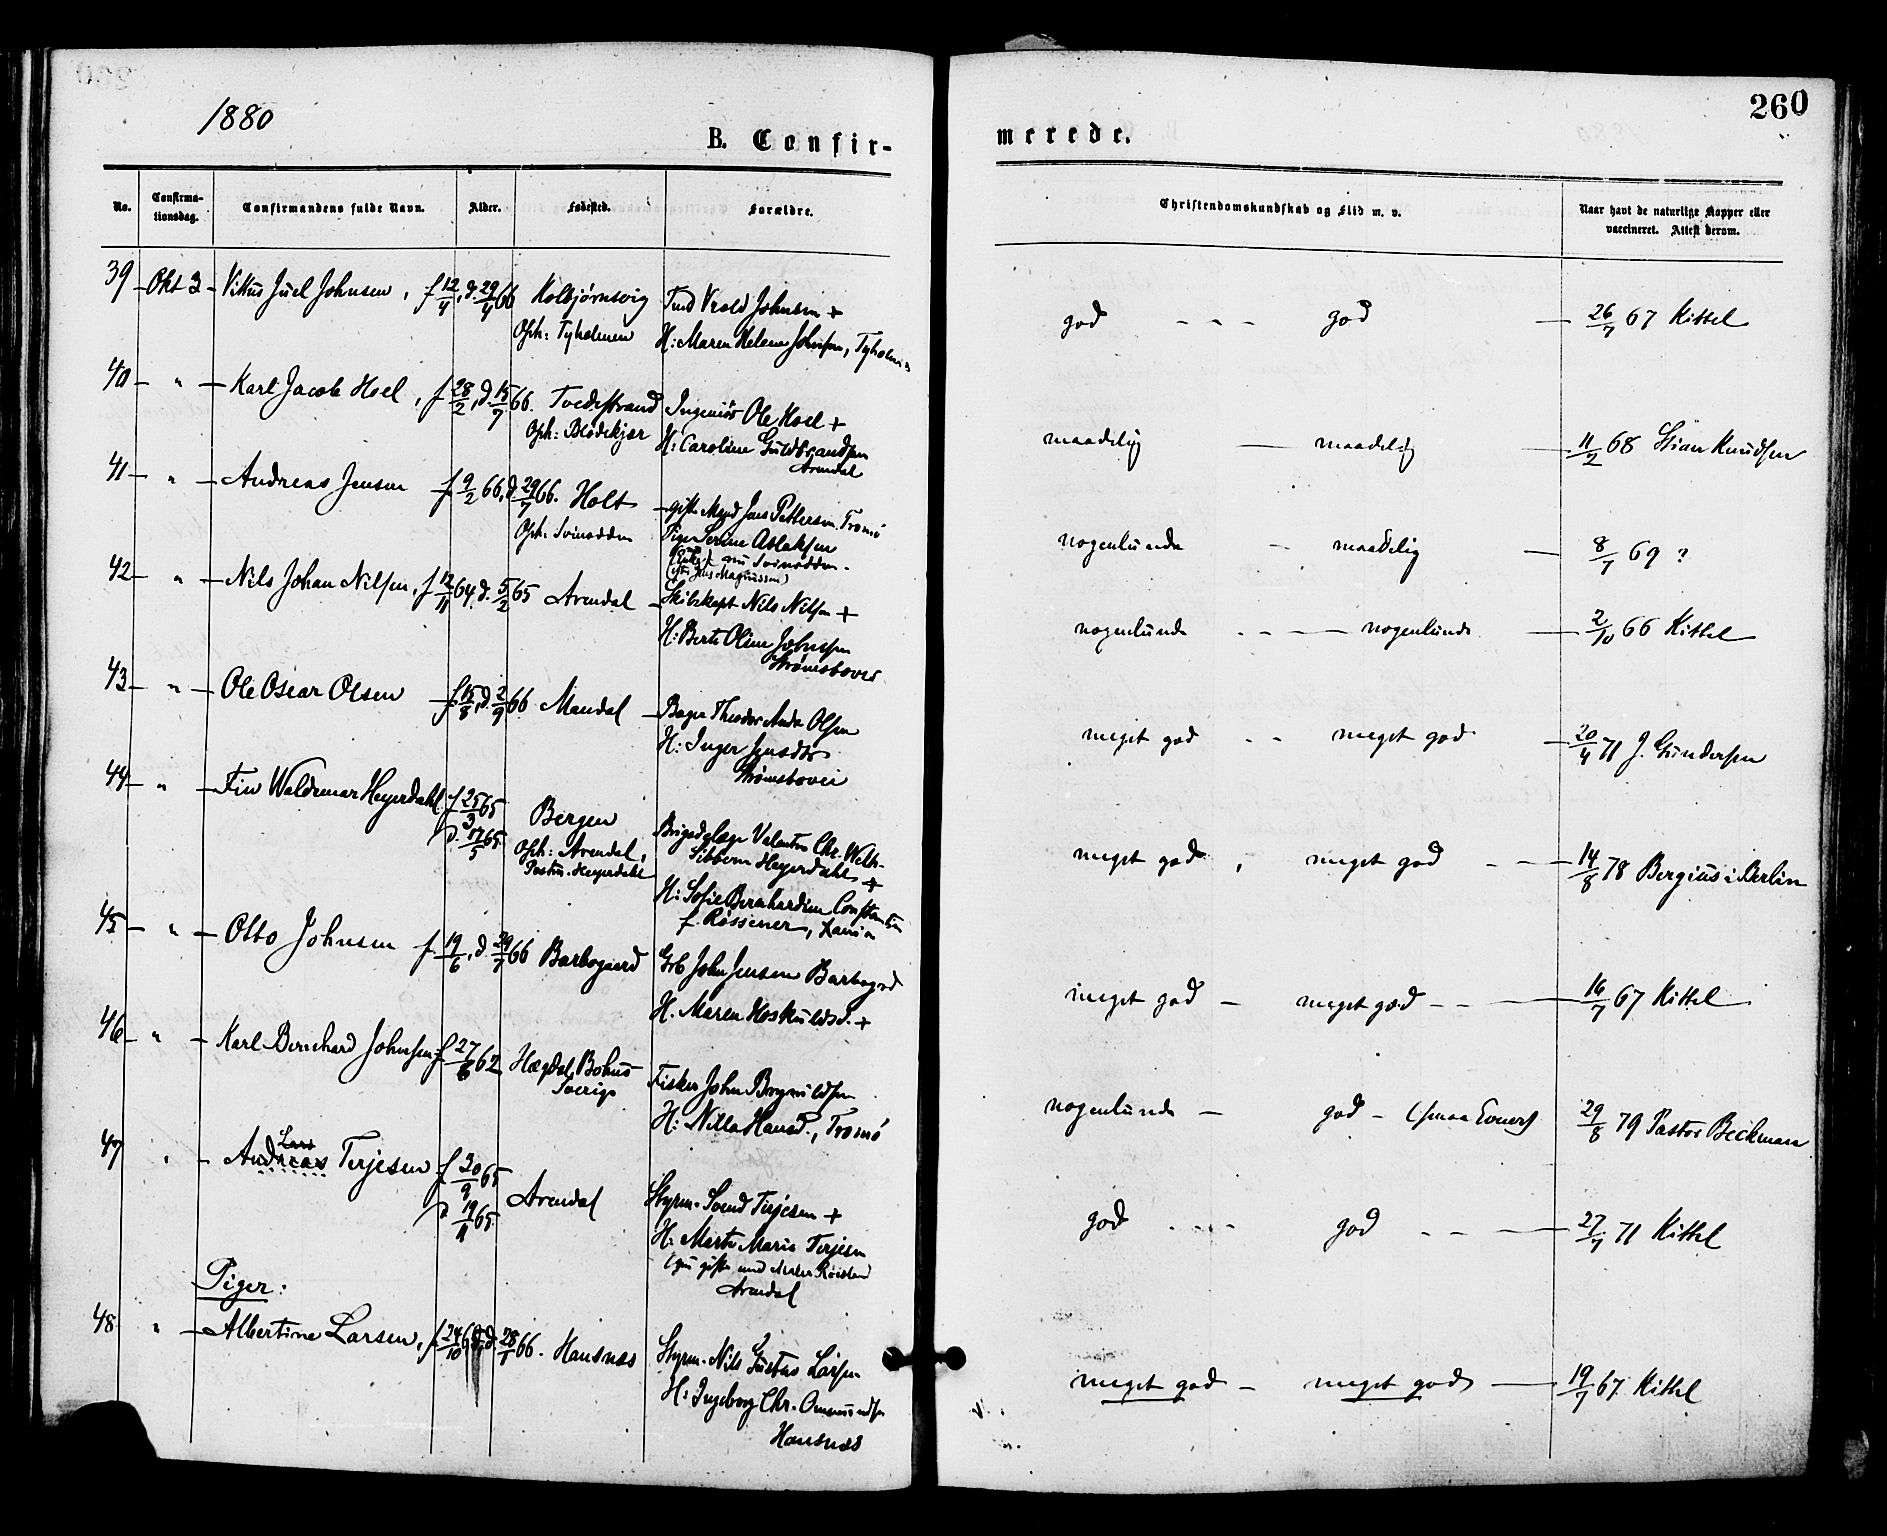 1880
260
B. Confir-
merede.
No.
Confirma-
tionsdag.
Confirmandens fulde Navn.
Alder.
Fødested.
Forældre.
Christendomskundskab og Flid m. v.
Naar havt de naturlige Kopper eller
vaccineret. Attest derom.
39 - Okt 3 - Juel Johnsen, f 12/4, d. 29/4 66 Kolbjørnsvig
Johnsen +
Oph: Tyholmen
H: Maren Helene Johnsen, Tyholmen
god - - - god - 26/7 67 Kittel
40 - " - Karl Jacob Hoel, f 28/2, d. 15/7 66. Tvedestrand Ingeniör Ole Hoel +
Oph: Blødekjær H: Caroline Guldbrandsen
Arendal
maadelig - maadelig - 11/2 68 Stian Knudsen
41 - " - Andreas Jensen f 9/2 66, d. 29/7 66. Holt - gifte Jens Pettersen. Tromö
Oph. Svinodden Pige Serine Aslaksen
nu Svinodden.
(Jens Magnussen)
nogenlunde - maadelig - 8/7 69 ?
42 - " - Nils Johan Nilsen, f 12/11 64, d. 5/2 65 Arendal - Skibskapt Nils Nilsen +
H: Berte Oline Johnsen
Strømsboveie
nogenlunde - - - nogenlunde - 2/10 66 Kittel
43 - " - Ole Oscar Olsen f. 15/8, d. 2/9 66 Mandal - Bager Theodor Olsen
H: Inger Jensdtr
Strømsbovei
meget god - - meget god - 20/4 71 J. Gundersen
44 - " - Fin Waldemar Heyerdahl f 25/3 65
d. 17/5 65
Bergen
Oph: Arendal,
Pastor Heyerdahl
Brigadelæge Valentin Chr. Wilh.
Sibbern Heyerdahl +
H: Sofie Bernhardine Constantin
f. Rössener,
meget god, meget god - - - 14/8 78 Bergius i Berlin
45 - " - Otto Johnsen f. 19/6, d. 29/7 66 Barbogaard Grb John Jensen Barbogrd
H. Maren Hoskuldsd. +
meget god - meget god - - - 16/7 67 Kittel
46 - " - Karl Bernhard Johnsen f 27/6 62 Bohus
Sverige
Fisker John
H: Nilla Hansd., Tromö
nogenlunde - god - (smaa Evner) 29/8 79 Pastor Beckman
47 " - Lars
Andreas Terjesen f 30/9 65
d. 19/11 65
Arendal
Styrm. Svend Terjesen +
H. Marte Marie Terjesen
(nu gifte med
Arendal
god - - - god - - - 27/7 71 Kittel
Piger:
48 " - Albertine Larsen, f. 24/10 65, d. 28/1 66. Hausnæs
Styrm. Nils Gustav Larsen
H: Ingeborg Chr. Ommundsen
Hausnæs
meget god - meget god - 19/7 67 Kittel